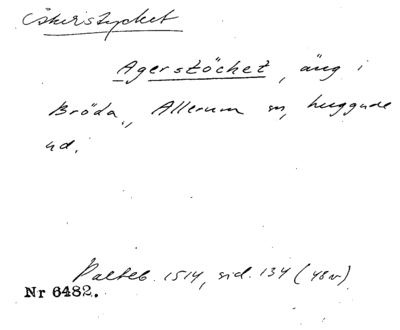 Åkerstycket
Agerstöchet, äng i
Bröda, Allerum sn, Luggude
hd.
Palteb. 1514, sid. 134 (48v)
Nr 6482.